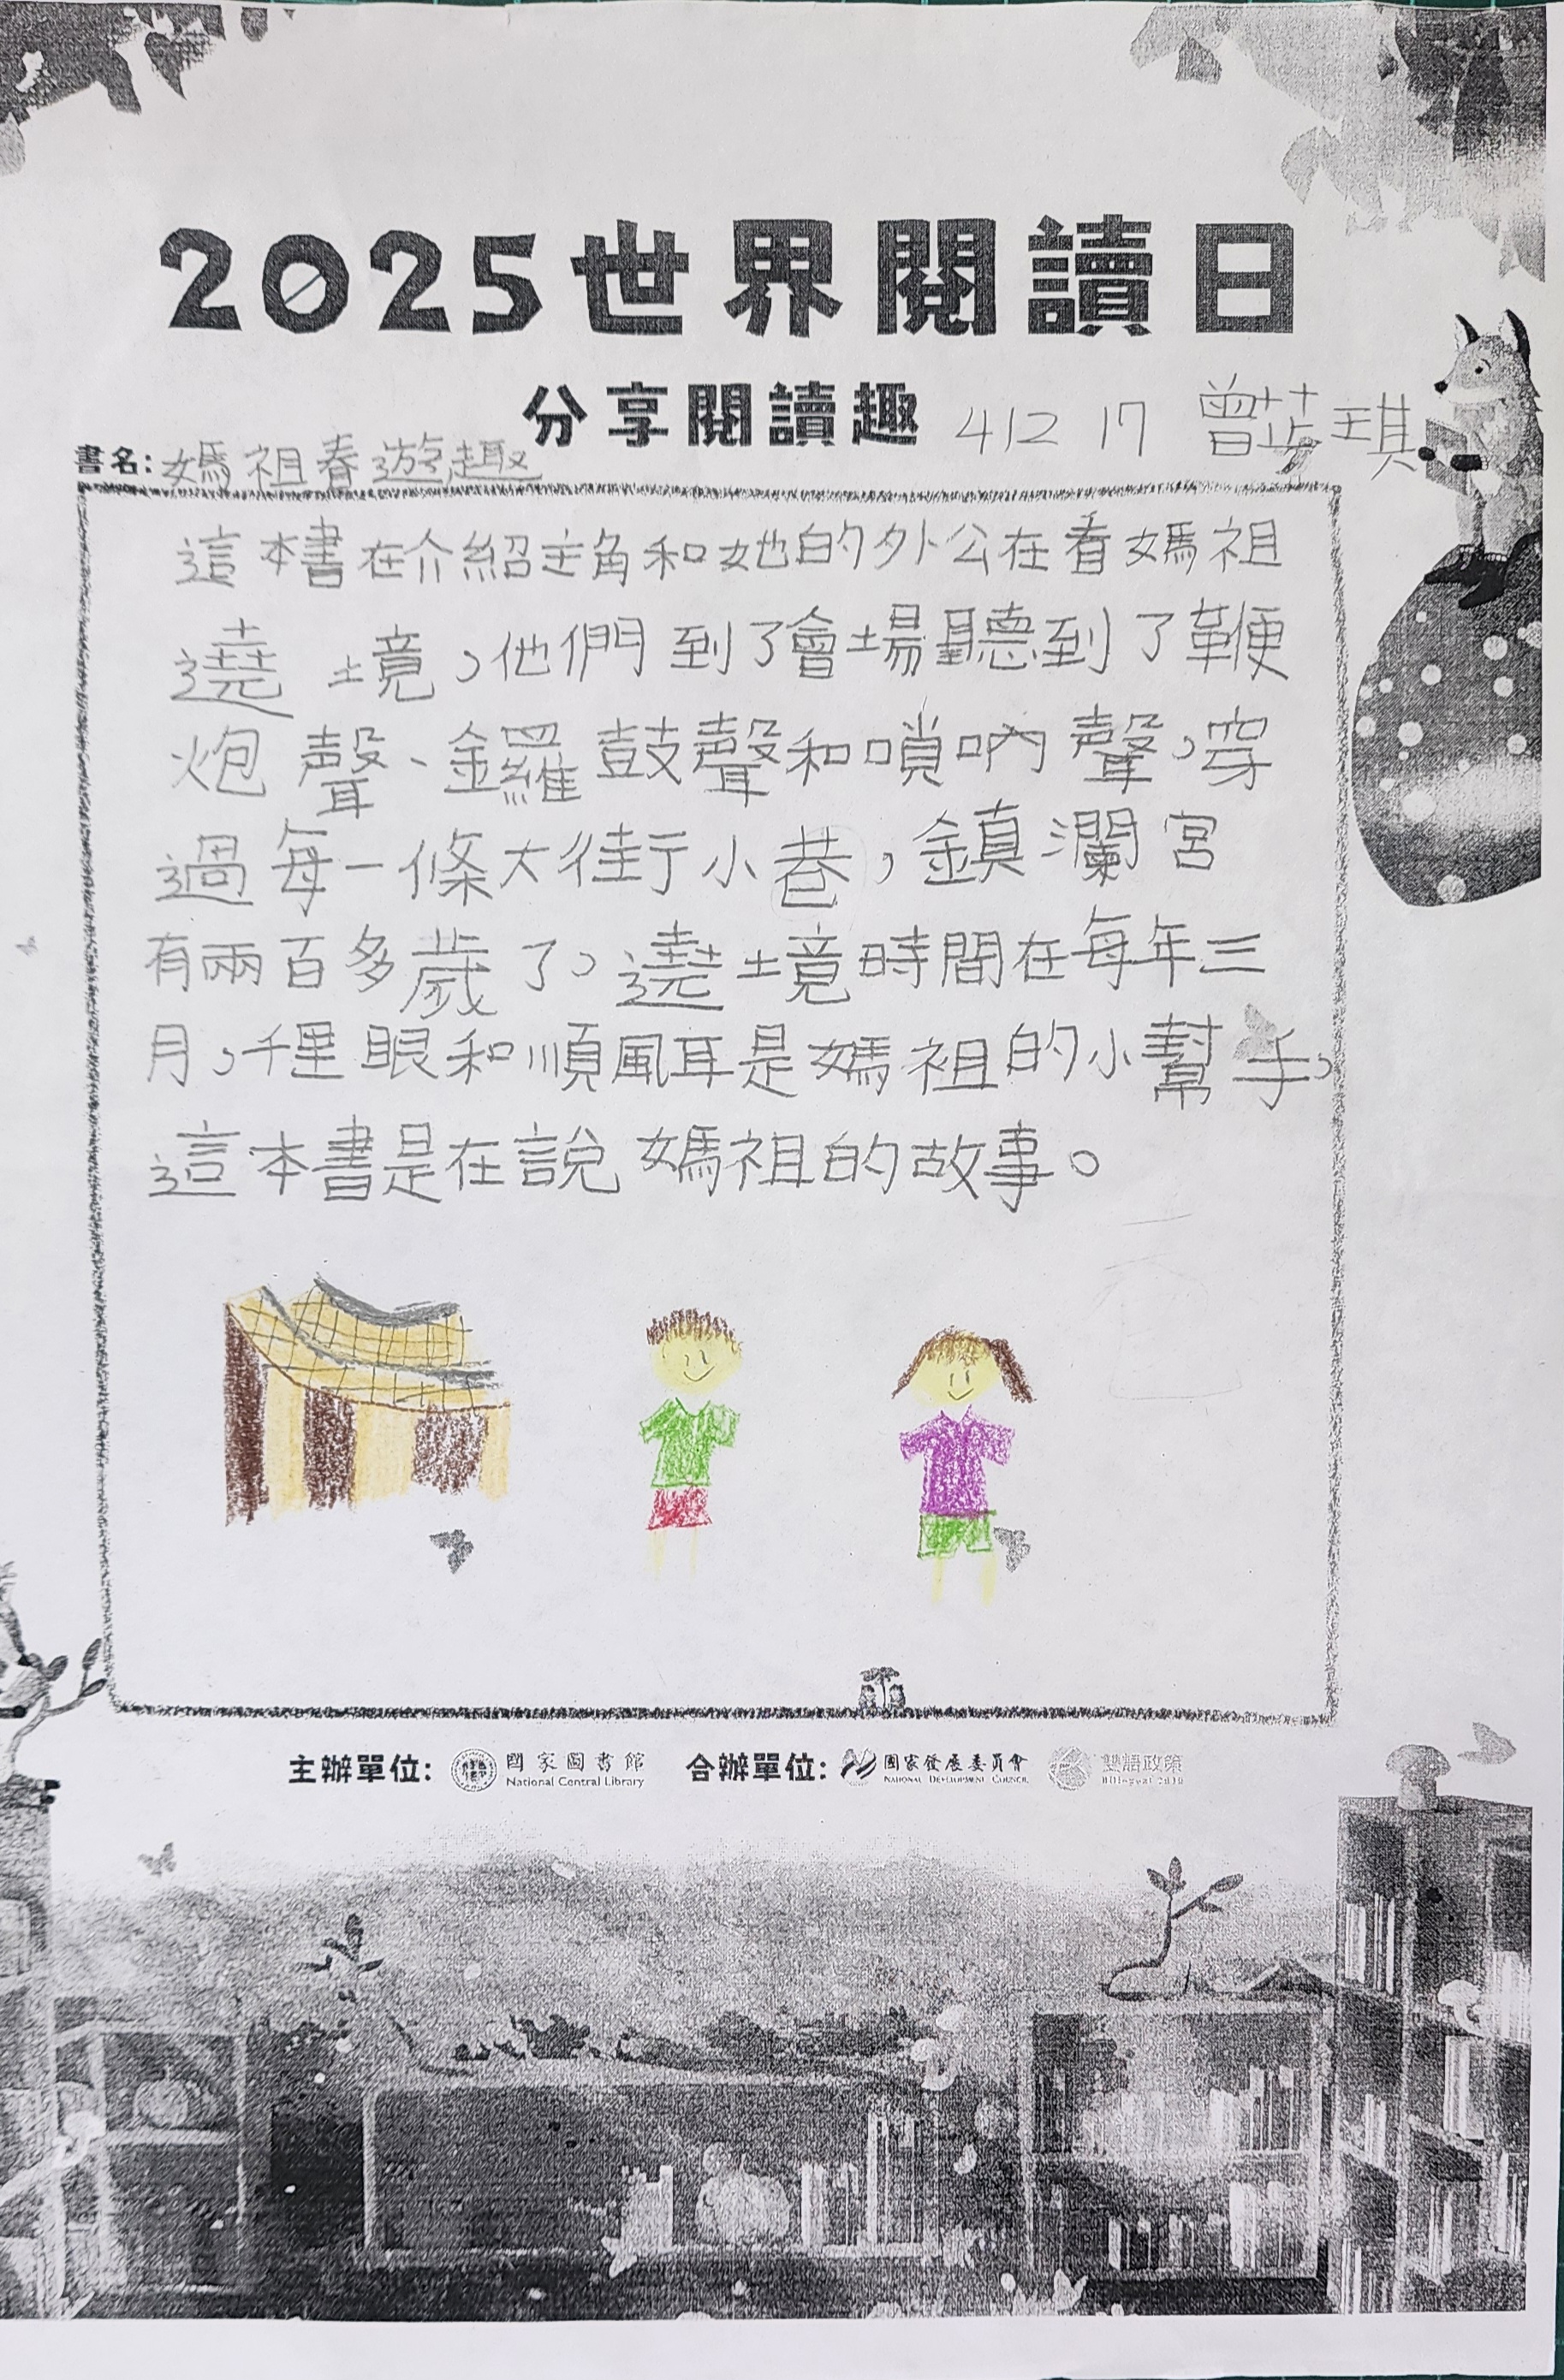 2025世界閱讀日
分享閱讀趣 412 17 曾芸琪
書名:媽祖春遊趣
這本書在介紹主角和她的外公在看媽祖
遶境,他們到了會場聽到了鞭
炮聲、鑼鼓聲和嗩吶聲,穿
過每一條大街小巷,鎮瀾宮
有兩百多歲了,遶境時間在每年三
月,千里眼和順風耳是媽祖的小幫手,
這本書是在說媽祖的故事。
主辦單位: 國家圖書館 合辦單位: 國家發展委員會 雙語政策
National Central Library NATIONAL DEVELOPMENT COUNCIL Bilingual 2030